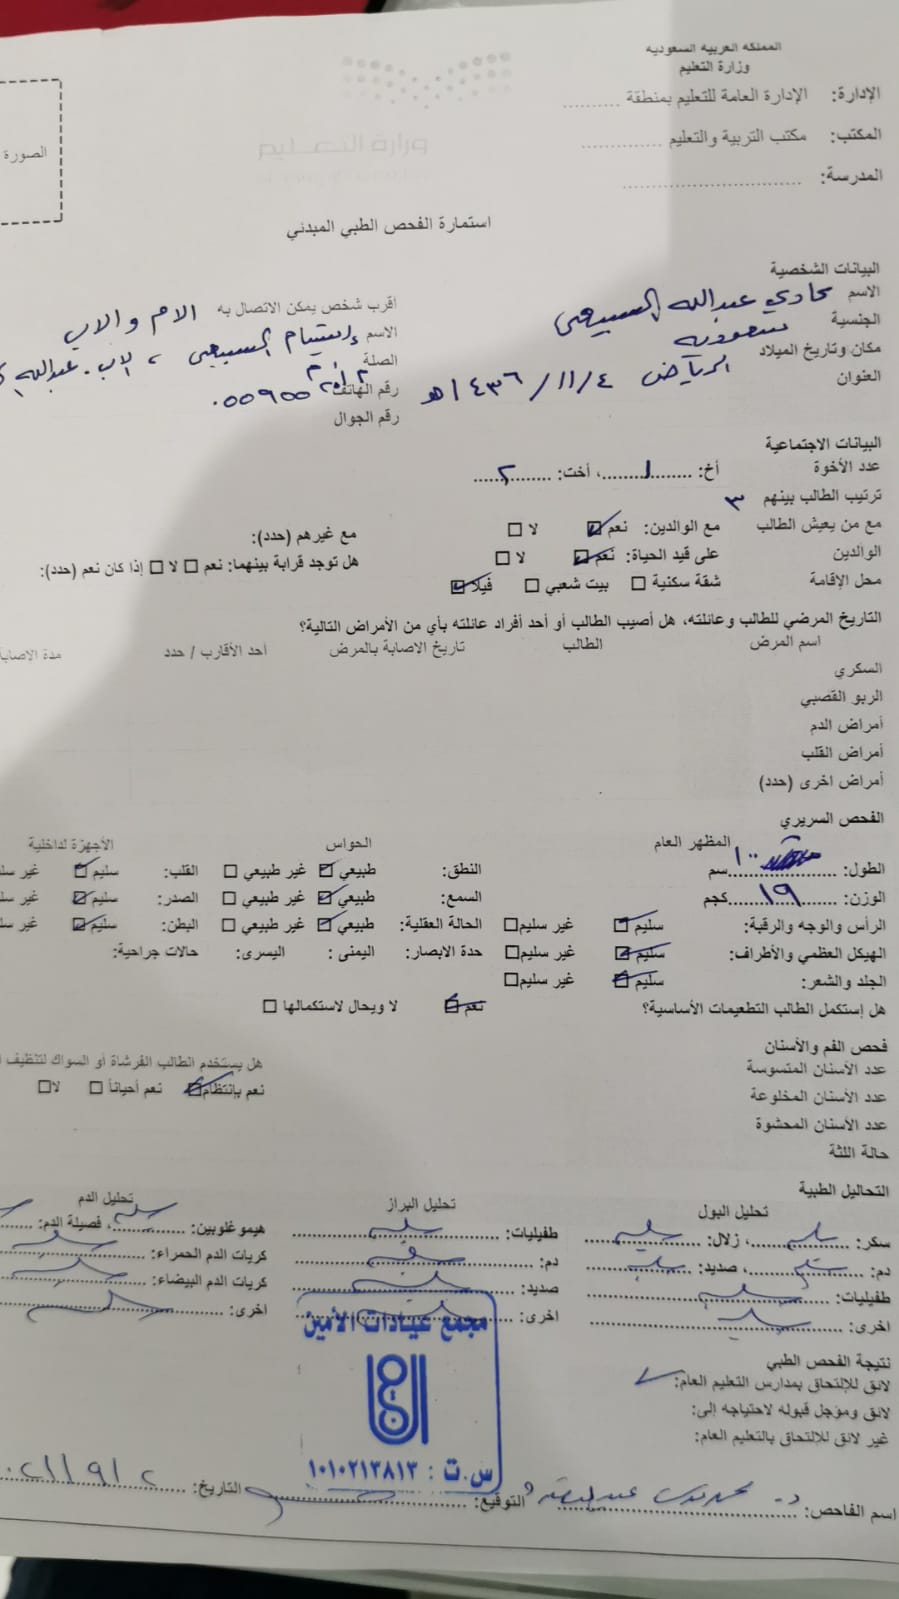 المملكة العربية السعودية
وزارة التعليم
الإدارة: الإدارة العامة للتعليم بمنطقة ..........
المكتب: مكتب التربية والتعليم ..............
المدرسة: ................................
الصورة
وزارة التعليم
استمارة الفحص الطبي المبدئي
البيانات الشخصية
الاسم عبدالله السبيعي
الجنسية سعودية
مكان وتاريخ الميلاد الرياض ٤/١١/١٤٣٦هـ
العنوان
اقرب شخص يمكن الاتصال به الام والاب
الاسم السبيعي ، الاب. عبدالله
الصلة
رقم الهاتف
رقم الجوال
البيانات الاجتماعية
عدد الأخوة أخ: ....١....، أخت: ....٢....
ترتيب الطالب بينهم ٣
مع من يعيش الطالب مع الوالدين: نعم ☑ لا ☐ مع غيرهم (حدد):
الوالدين على قيد الحياة: نعم ☑ لا ☐ هل توجد قرابة بينهما: نعم ☐ لا ☐ إذا كان نعم (حدد):
محل الإقامة شقة سكنية ☐ بيت شعبي ☐ فيلا ☑
التاريخ المرضي للطالب وعائلته، هل أصيب الطالب أو أحد أفراد عائلته بأي من الأمراض التالية؟
اسم المرض الطالب تاريخ الاصابة بالمرض أحد الأقارب / حدد مدة الاصابة
السكري
الربو القصبي
أمراض الدم
أمراض القلب
أمراض اخرى (حدد)
الفحص السريري
المظهر العام الحواس الأجهزة لداخلية
الطول: ١٠٠ سم النطق: طبيعي ☑ غير طبيعي ☐ القلب: سليم ☑ غير
الوزن: ١٩ كجم السمع: طبيعي ☑ غير طبيعي ☐ الصدر: سليم ☑ غير
الرأس والوجه والرقبة: سليم ☑ غير سليم ☐ الحالة العقلية: طبيعي ☑ غير طبيعي ☐ البطن: سليم ☑ غير
الهيكل العظمي والأطراف: سليم ☑ غير سليم ☐ حدة الابصار: اليمنى : اليسرى: حالات جراحية:
الجلد والشعر: سليم ☑ غير سليم ☐
هل إستكمل الطالب التطعيمات الأساسية؟ نعم ☑ لا ويحال لاستكمالها ☐
فحص الفم والأسنان
عدد الأسنان المتسوسة هل يستخدم الطالب الفرشاة أو السواك لتنظيف
عدد الأسنان المخلوعة نعم بإنتظام ☑ نعم أحياناً ☐ لا ☐
عدد الأسنان المحشوة
حالة اللثة
التحاليل الطبية
تحليل البول تحليل البراز تحليل الدم
سكر: سليم، زلال: سليم طفيليات: سليم هيموغلوبين: سليم، فصيلة الدم:
دم: سليم، صديد: سليم دم: كريات الدم الحمراء:
طفيليات: سليم صديد: كريات الدم البيضاء:
اخرى: اخرى: اخرى:
مجمع عيادات الأمين
س.ت : ١٠١٠٢١٣٨١٣
نتيجة الفحص الطبي
لائق للإلتحاق بمدارس التعليم العام: ✓
لائق ومؤجل قبوله لاحتياجه إلى:
غير لائق للالتحاق بالتعليم العام:
اسم الفاحص: د. التوقيع: التاريخ: